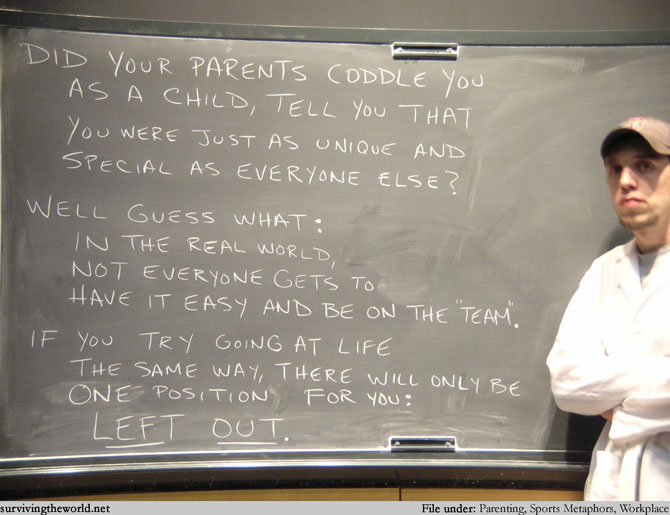 DID YOUR PARENTS CODDLE YOU
AS A CHILD, TELL YOU THAT
YOU WERE JUST AS UNIQUE AND
SPECIAL AS EVERYONE ELSE?
WELL GUESS WHAT:
IN THE REAL WORLD,
NOT EVERYONE GETS TO
HAVE IT EASY AND BE ON THE "TEAM".
IF YOU TRY GOING AT LIFE
THE SAME WAY, THERE WILL ONLY BE
ONE POSITION FOR YOU:
LEFT OUT.
survivingtheworld.net File under: Parenting, Sports Metaphors, Workplace